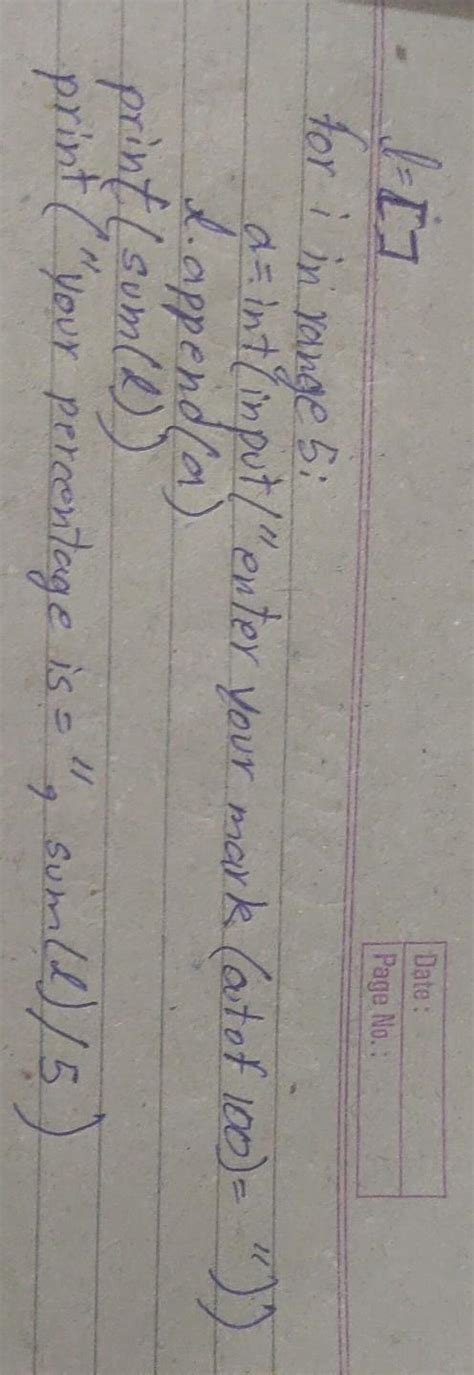 Date :
Page No. :
l = []
for i in range 5:
a = int(input("enter your mark (out of 100) = "))
l.append(a)
print(sum(l))
print("your percentage is = ", sum(l)/5)